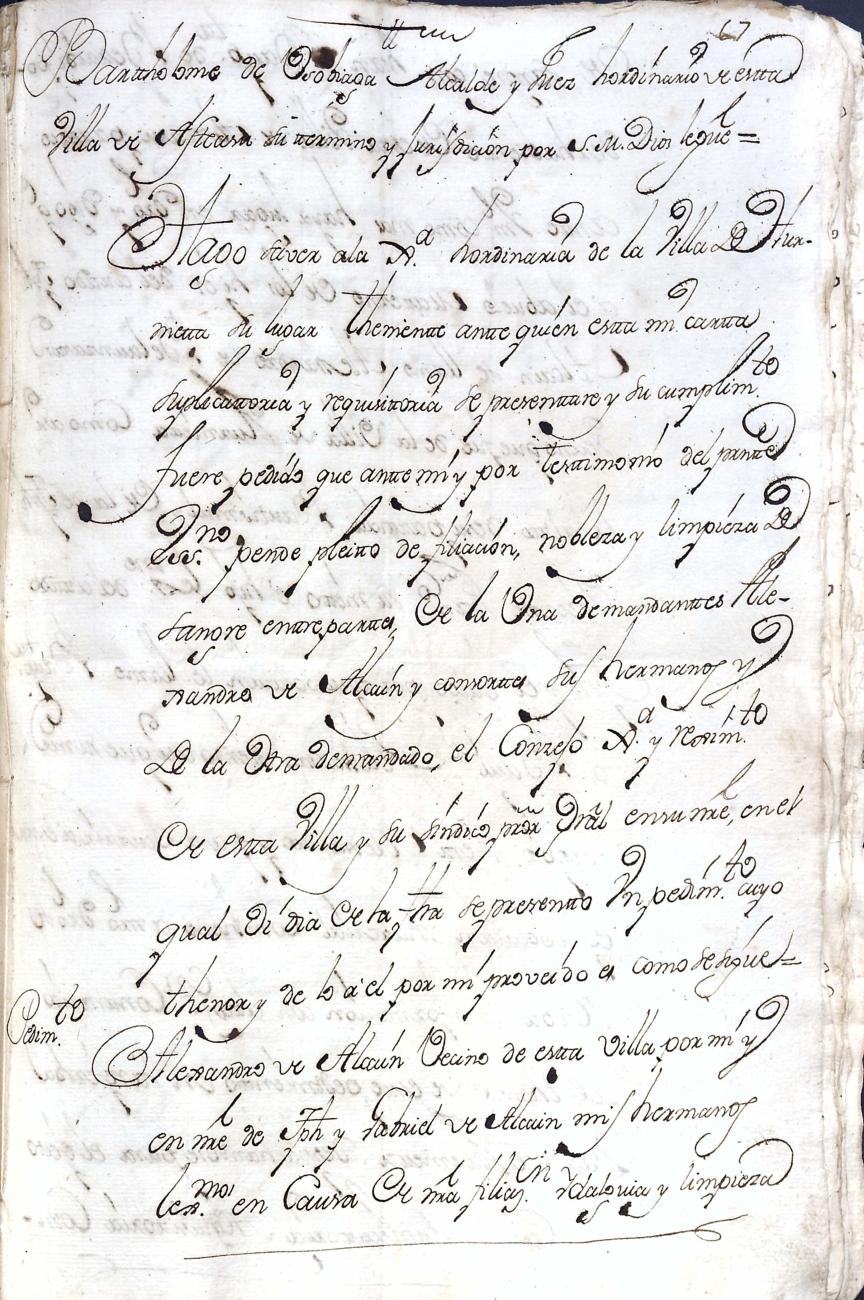 67
Barttholome de Osobiaga Alcalde y Juez hordinario de estta
Villa de Asteasu su termino y Jurisdicion por S. M. Dios legue =
Hago saver ala Jª. hordinaria de la Villa de Hur-
nietta su lugar theniente ante quien estta mi cartta
suplicattoria y requisittoria se presenttare y su cumplimto
fuere pedido que ante mi y por testtimonio del prntte
Essno. pende pleitto de filiacion, nobleza y limpieza de
sangre entre parttes, de la Una demandanttes Ale-
xandro de Alcain y consorttes sus hermanos y
de la Otra demandado, el Conzejo Jª. y rexim.to
de estta Villa y su sindico pror Gral en su nre, en el
qual oi dia de la fha se presentto Un pedim.to cuyo
thenor y de lo a el por mi proveido es como se sigue =
Pedim.to
Alexandro de Alcain Vecino de estta Villa por mi y
en nre de Jph y Gabriel de Alcain mis hermanos
lexmos. en Causa de nra filiaz.on Ydalguia y limpieza